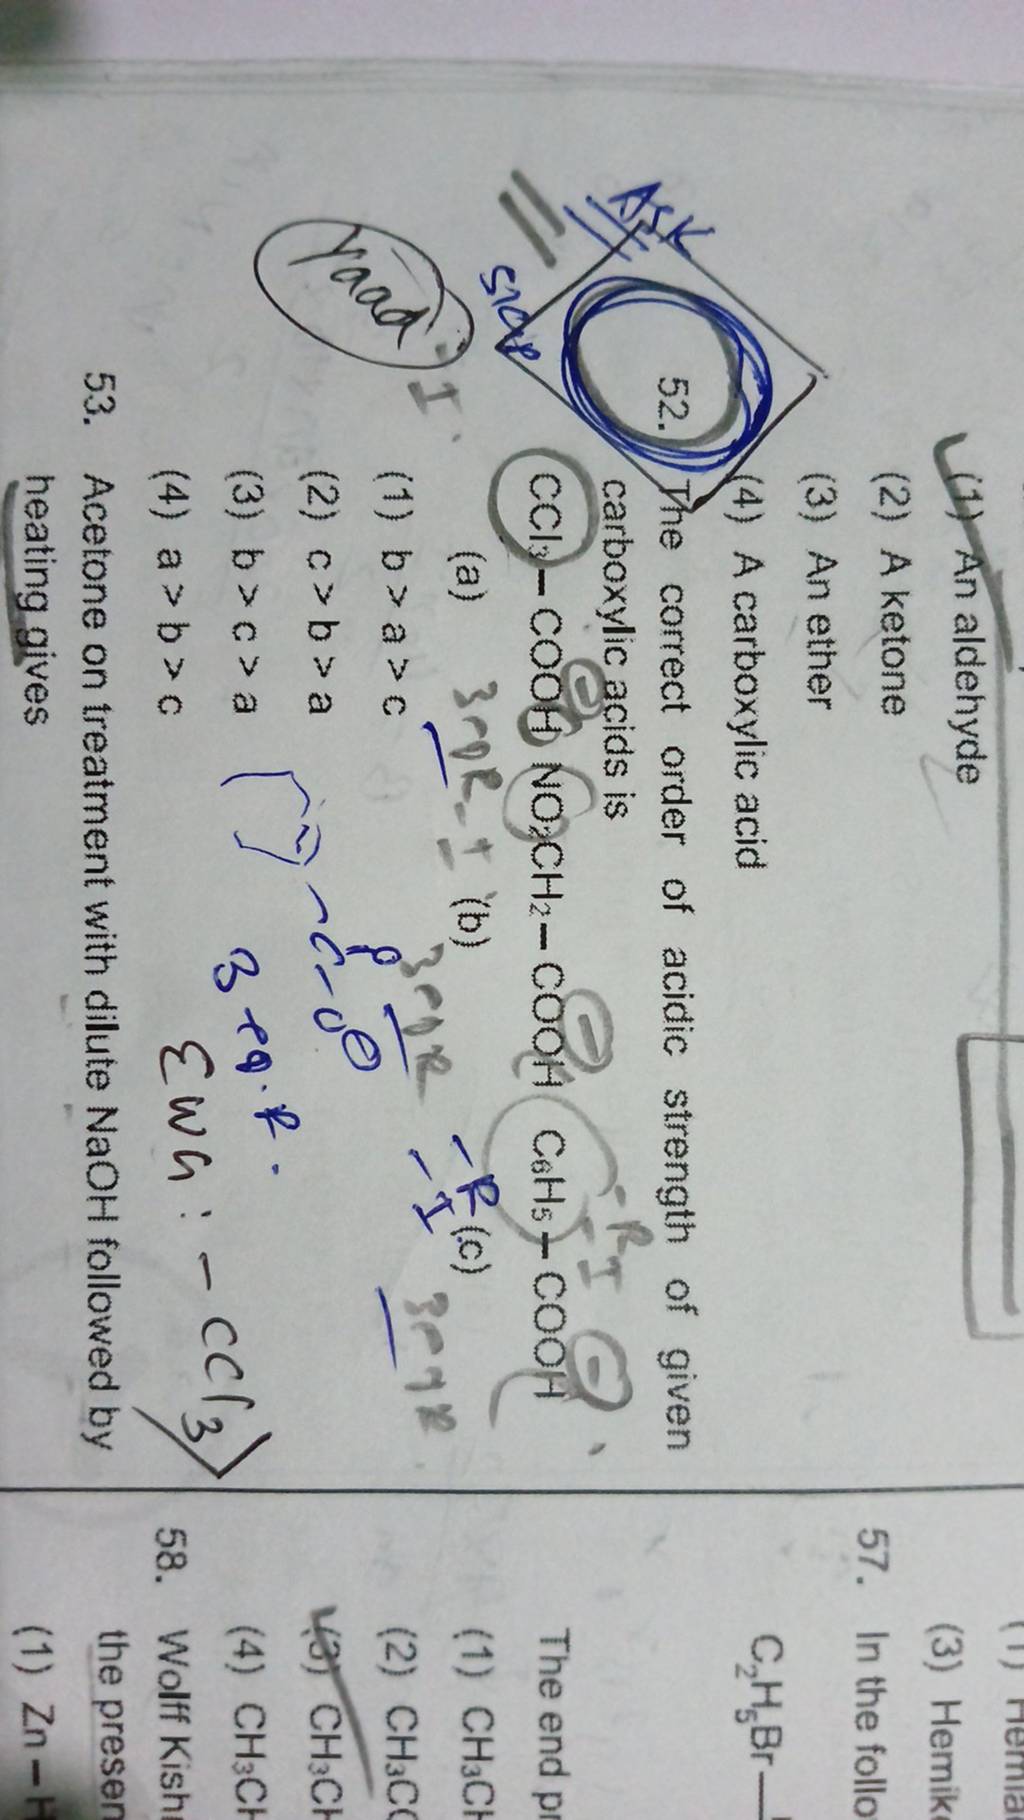 (1) An aldehyde
(2) A ketone
(3) An ether
(4) A carboxylic acid
ASK
52. The correct order of acidic strength of given
carboxylic acids is
-R
-I
CCl₃ – COOH NO₂CH₂ – COOH C₆H₅ – COOH
(a) (b) (c)
-I
3 eqR
3 eqR
-R
-I
3 eq R
Yaad
(1) b > a > c
(2) c > b > a
(3) b > c > a
(4) a > b > c
3 eq. R.
EWG : – CCl₃
53. Acetone on treatment with dilute NaOH followed by
heating gives
(3) Hemik
57. In the follo
C₂H₅Br
The end pr
(1) CH₃CH
(2) CH₃CO
(3) CH₃CH
(4) CH₃CH
58. Wolff Kishn
the presen
(1) Zn – H